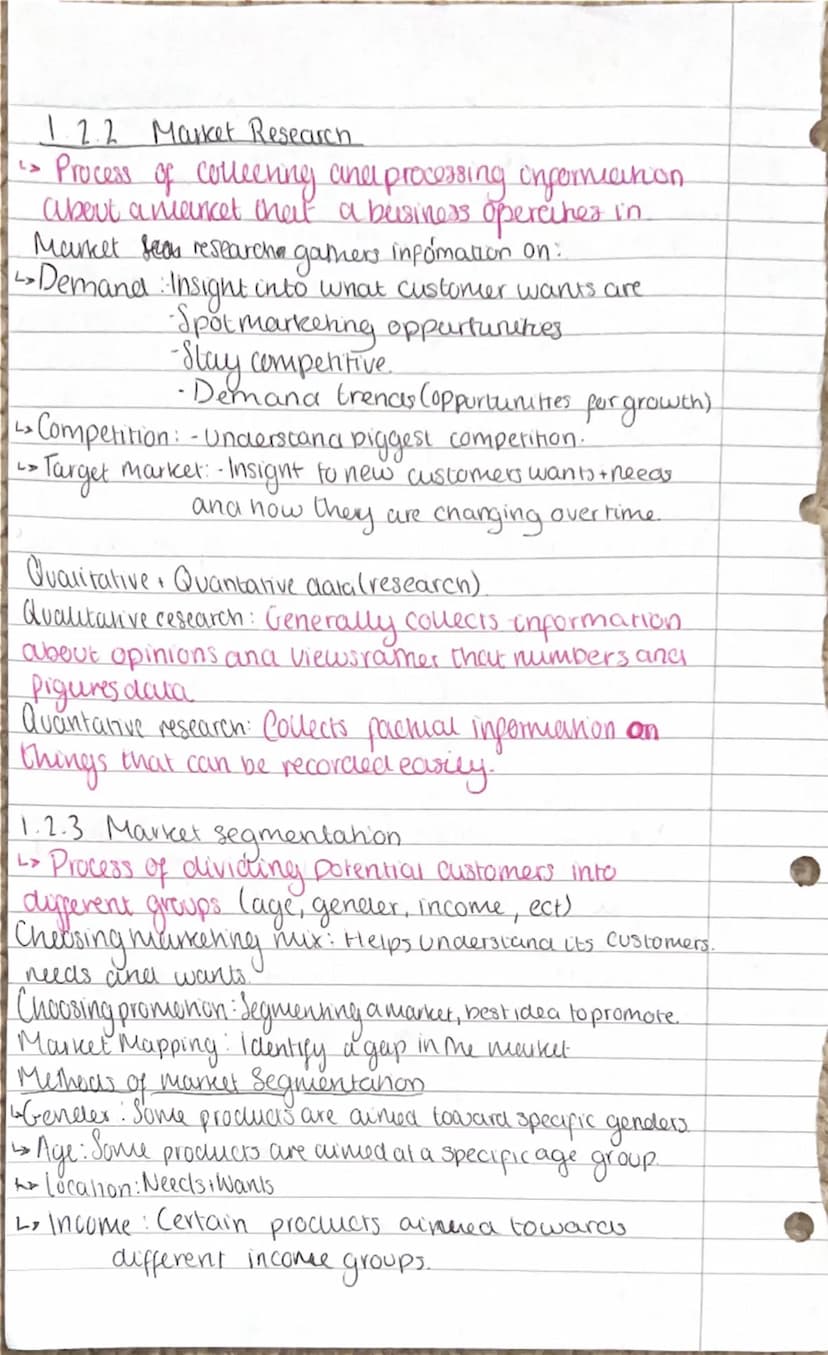 1.2.2 Market Research
↳ Process of collecting and processing information
about a market that a business operates in
Market research gathers infomation on:
↳ Demand: Insight into what customer wants are
- Spot marketing oppurtunities
- Stay competitive.
- Demand trends (oppurtunities for growth)
↳ Competition: - Understand biggest competition.
↳ Target market: - Insight to new customers wants + needs
and how they are changing over time.
Qualitative + Quantative data (research)
Qualitative research: Generally collects information
about opinions and views rather that numbers and
figures data
Quantative research: Collects factual information on
things that can be recorded easily.
1.2.3 Market segmentation
↳ Process of dividing potential customers into
different groups (age, gender, income, ect)
Choosing marketing mix: Helps understand its customers.
needs and wants
Choosing promotion: Segmenting a market, best idea to promote.
Market Mapping: Identify a gap in the market
Methods of market Segmentation
↳ Gender: Some products are aimed toward specific genders.
↳ Age: Some products are aimed at a specific age group.
↳ Location: Needs + Wants
↳ Income: Certain products aimed towards
different income groups.